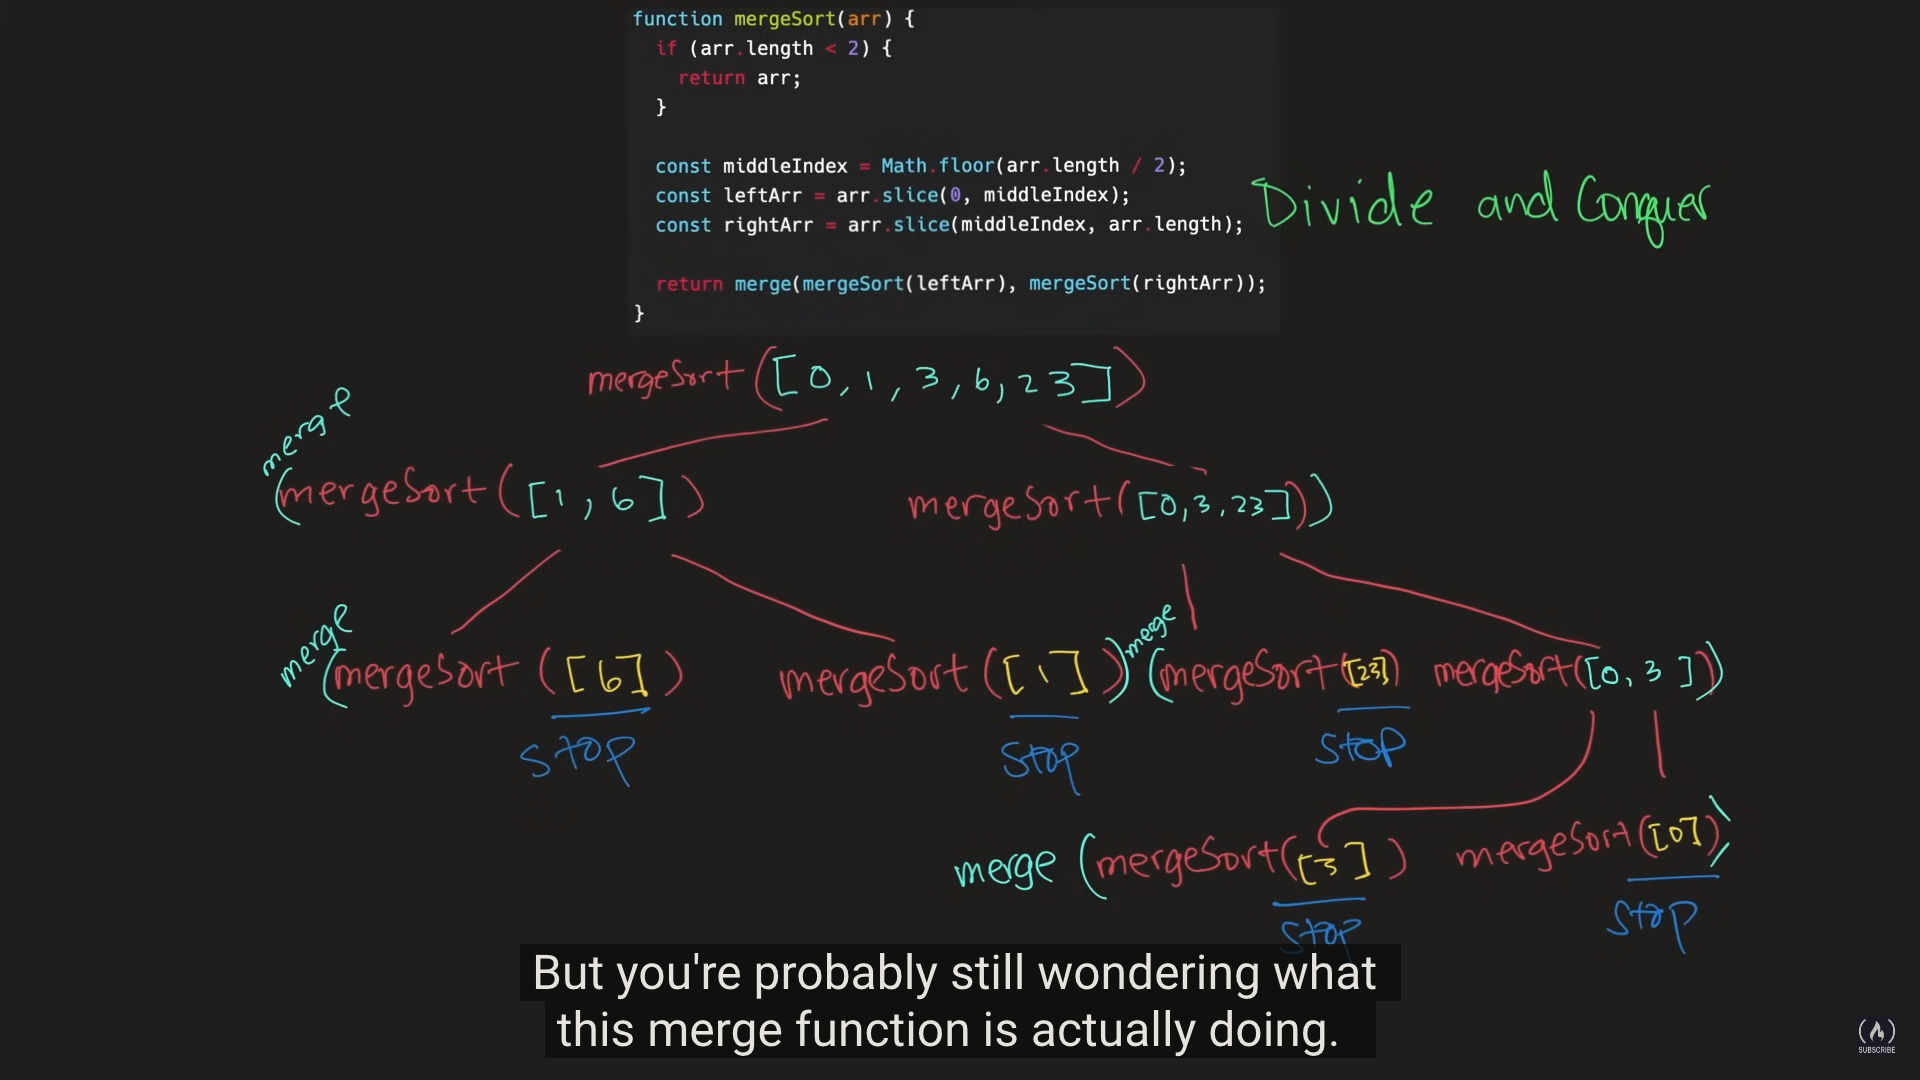 function mergeSort(arr) {
if (arr.length < 2) {
return arr;
}
const middleIndex = Math.floor(arr.length / 2);
const leftArr = arr.slice(0, middleIndex);
const rightArr = arr.slice(middleIndex, arr.length);
return merge(mergeSort(leftArr), mergeSort(rightArr));
}
Divide and Conquer
mergeSort([0, 1, 3, 6, 23])
merge
(mergeSort([1, 6]) mergeSort([0, 3, 23]))
merge merge
(mergeSort([6]) mergeSort([1])) (mergeSort([23]) mergeSort([0, 3]))
stop stop stop
merge (mergeSort([3]) mergeSort([0]))
stop stop
But you're probably still wondering what
this merge function is actually doing.
SUBSCRIBE